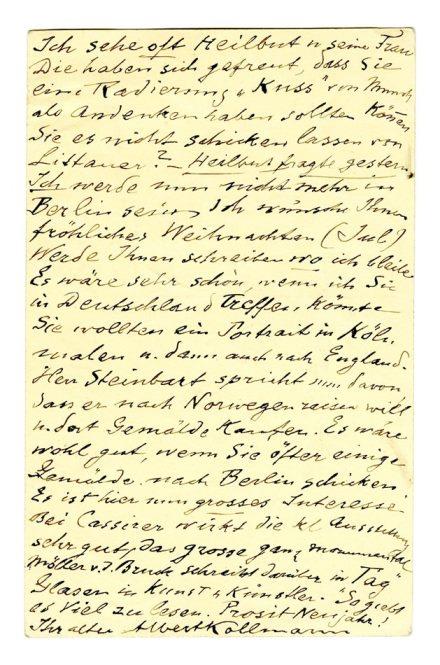 Ich sehe oft Heilbut u seine Frau
Die haben sich gefreut, dass Sie
eine Radierung „Kuss" von Munch
als Andenken haben sollten Können
Sie es nicht schicken lassen von
Littauer? – Heilbut fragte gestern.
Ich werde nun nicht mehr in
Berlin sein. Ich wünsche Ihnen
fröhliches Weihnachten (Jul)
Werde Ihnen schreiben wo ich bleibe
Es wäre sehr schön, wenn ich Sie
in Deutschland Treffen könnte
Sie wollten ein Portrait in Köln
malen u. dann auch nach England.
Herr Steinbart spricht nun davon
dass er nach Norwegen reisen will
u. dort Gemälde Kaufen. Es wäre
wohl gut, wenn Sie öfter einige
Gemälde nach Berlin schicken
Es ist hier nun grosses Interesse
Bei Cassirer wirkt die kl Ausstellung
sehr gut, das grosse ganz monumental
Möller v. d. Bruck schreibt darüber in „Tag"
Glaser in Kunst u Künstler. So giebt
es Viel zu lesen. Prosit Neujahr!
Ihr alter Albert Kollmann